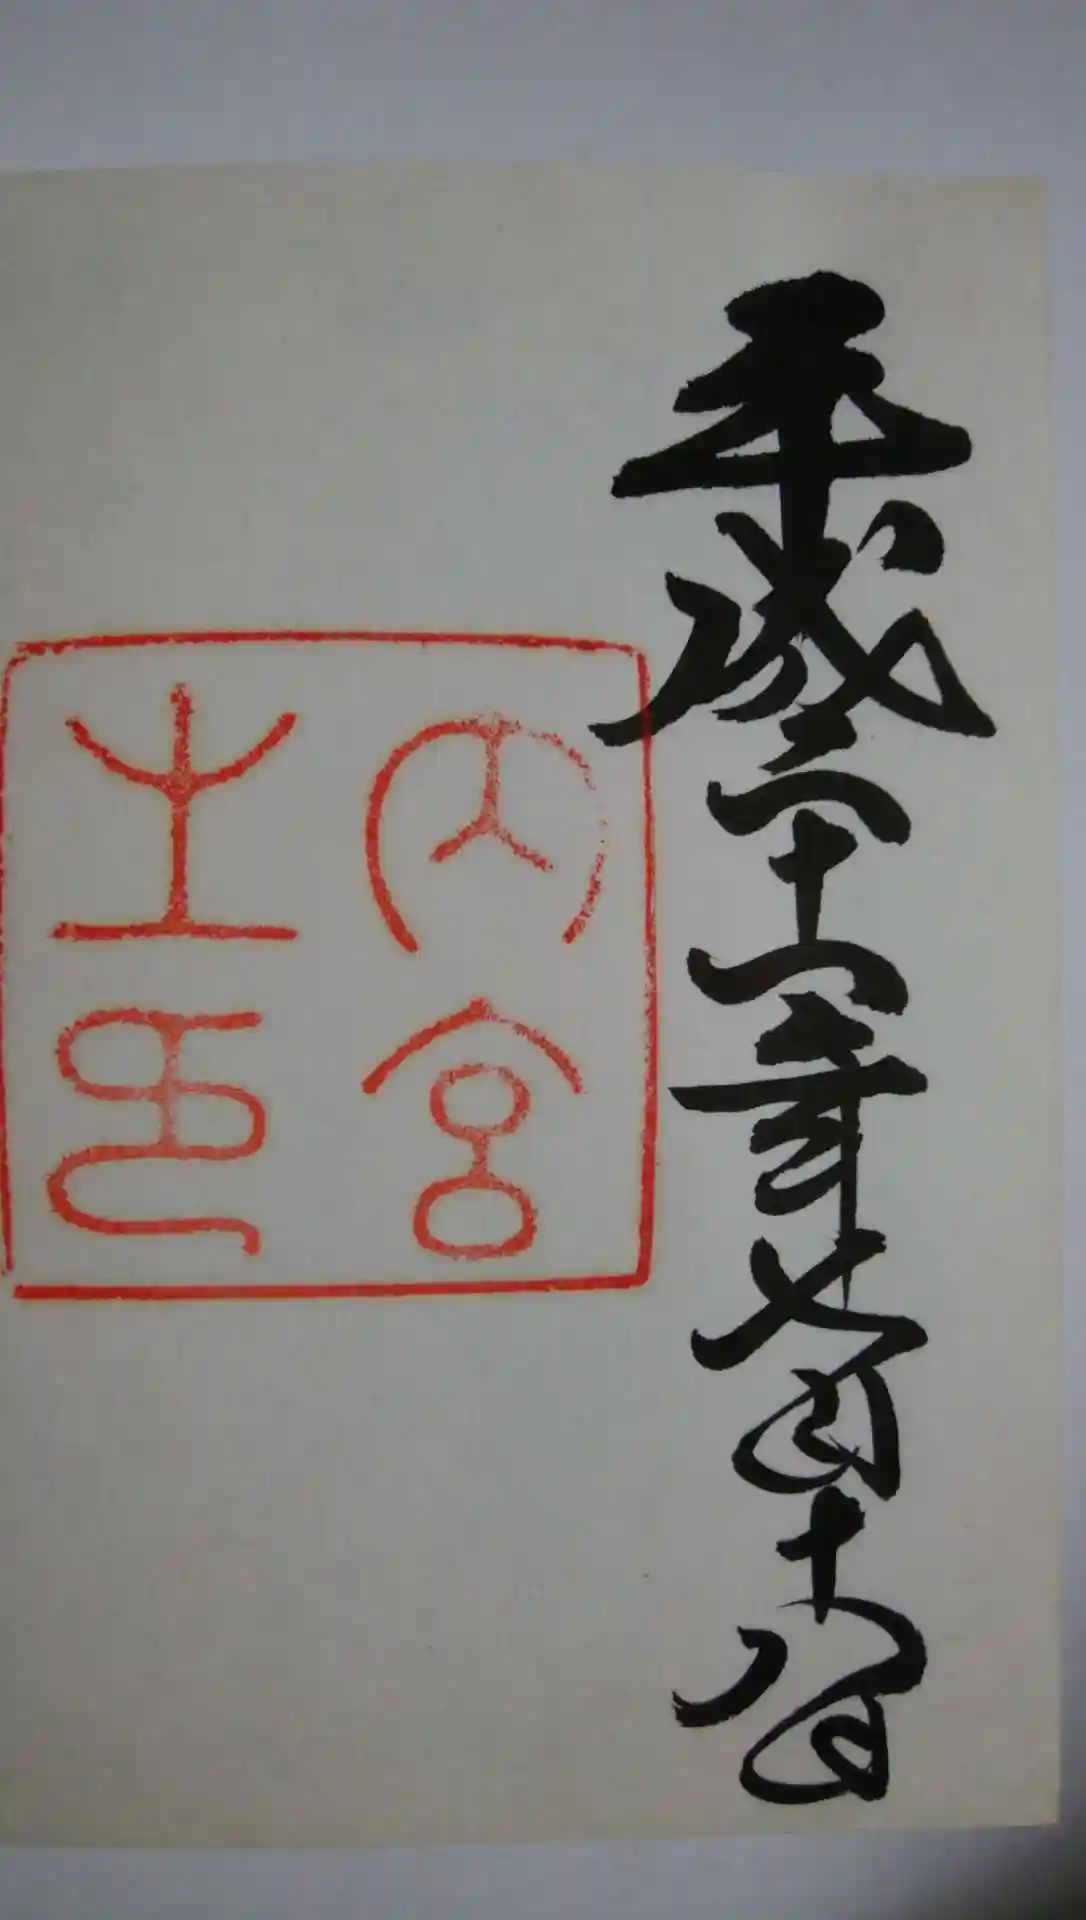 平成二十一年七月十八日
内宮
之印